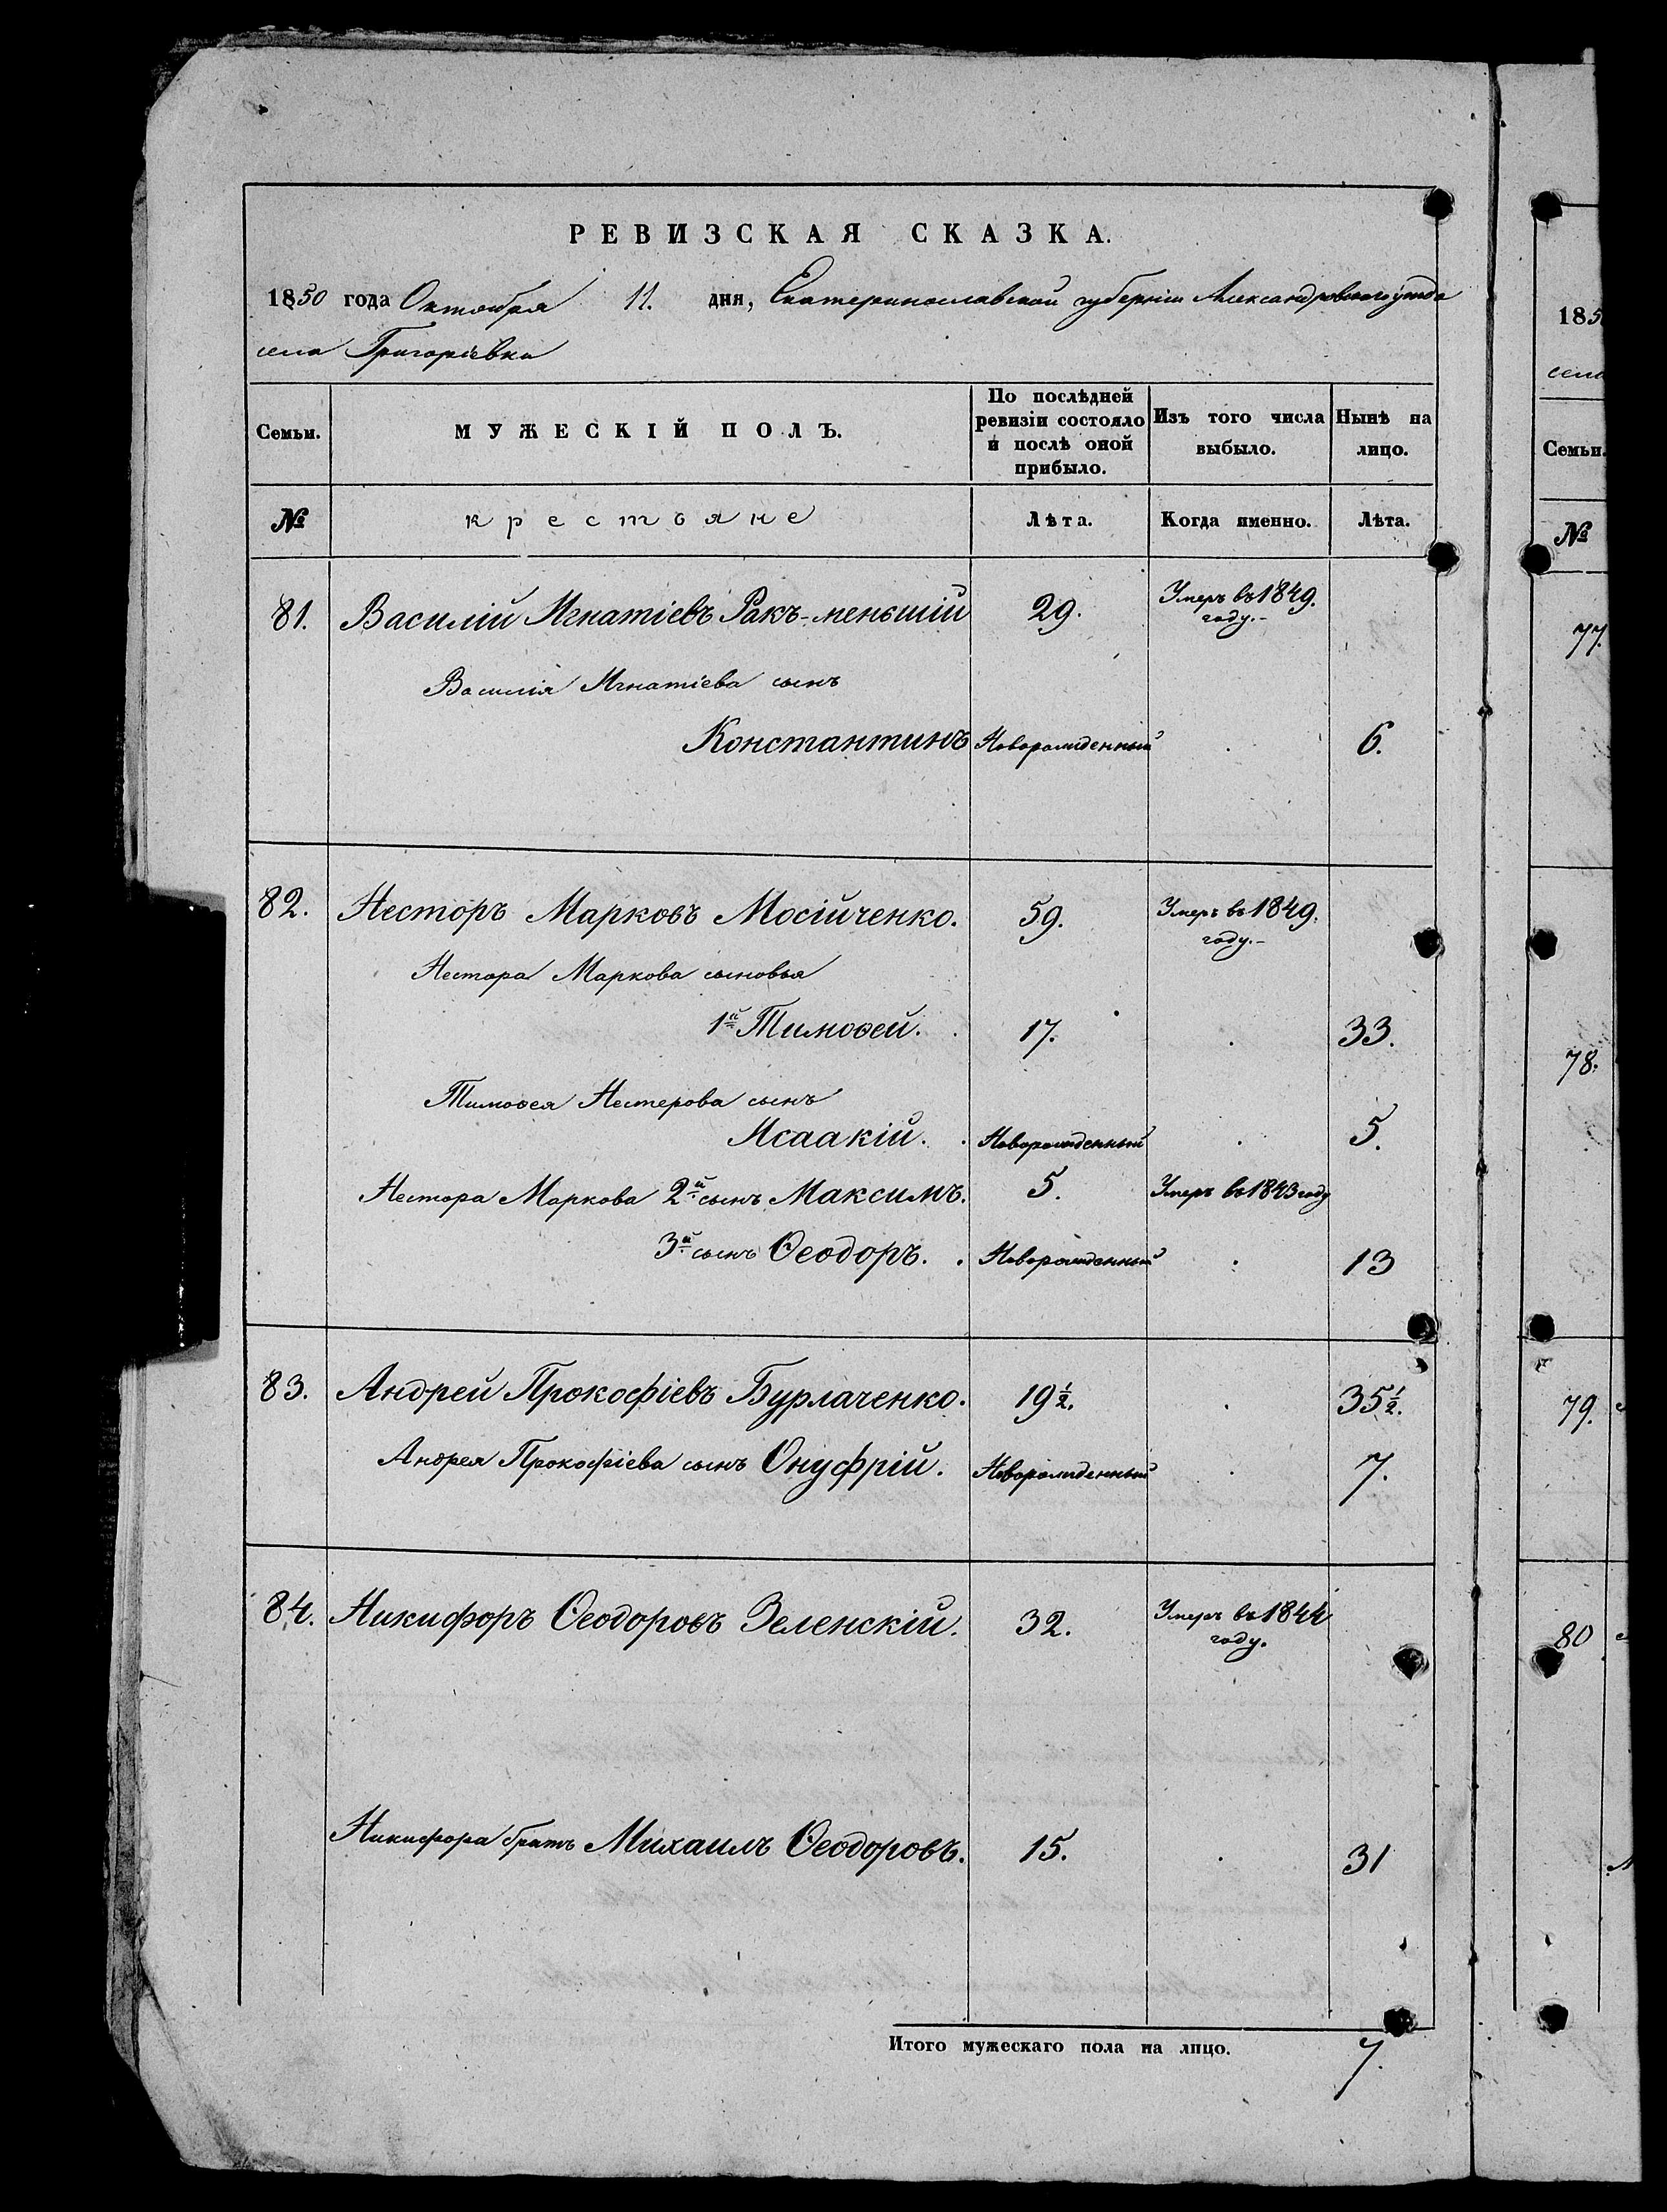 РЕВИЗСКАЯ СКАЗКА.
1850 года Октября 11. дня, Екатеринославской губерніи Александровского уезда
села Григоріевки
Семьи.
МУЖЕСКІЙ ПОЛЪ.
По послѣдней ревизіи состояло и послѣ оной прибыло.
Изъ того числа выбыло.
Нынѣ на лицо.
№ крестьяне Лѣта. Когда именно. Лѣта.
81. Василій Игнатіевъ Ракъ-меньшій 29. Умеръ въ 1849.
году.-
Василія Игнатіева сынъ
Константинъ Новорожденный . 6.
82. Несторъ Марковъ Мосійченко. 59. Умеръ въ 1849.
году.-
Нестора Маркова сыновья
1й Тимоѳей. . 17. . 33.
Тимоѳея Нестерова сынъ
Исаакій. . Новорожденный . 5.
Нестора Маркова 2й сынъ Максимъ. 5. Умеръ въ 1843 году
3й сынъ Ѳеодоръ. . Новорожденный . 13
83. Андрей Прокофіевъ Бурлаченко. 19½. . 35½.
Андрея Прокофіева сынъ Онуфрій. Новорожденный . 7.
84. Никифоръ Ѳеодоровъ Зеленскій. 32. Умеръ въ 1844
году.
Никифора братъ Михаилъ Ѳеодоровъ. 15. . 31
Итого мужескаго пола на лицо. 7.
185
села
Семьи.
№
77.
78.
79.
80